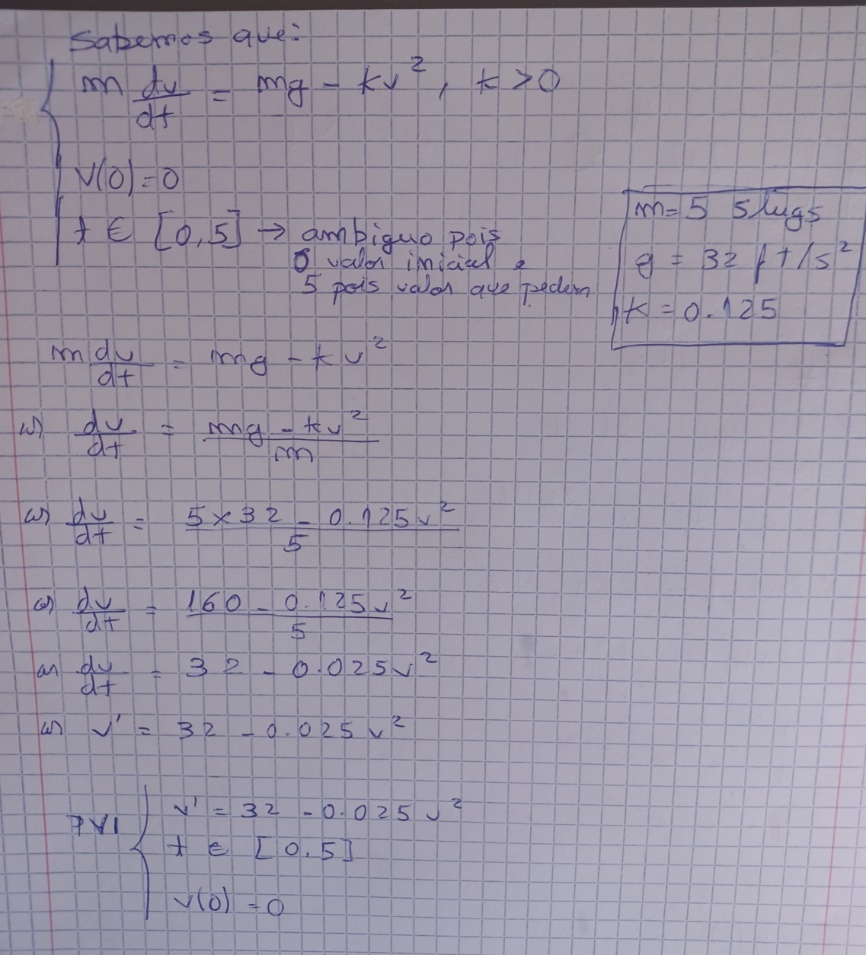 Sabemos que:
m dv/dt = mg - kv², k > 0
v(0) = 0
t ∈ [0,5] → ambiguo pois
0 valor inicial e
5 pois valor que pedem
m = 5 slugs
g = 32 ft/s²
k = 0.125
m dv/dt = mg - kv²
(=) dv/dt = (mg - kv²)/m
(=) dv/dt = (5 × 32 - 0.125v²)/5
(=) dv/dt = (160 - 0.125v²)/5
(=) dv/dt = 32 - 0.025v²
(=) v' = 32 - 0.025v²
PVI
v' = 32 - 0.025v²
t ∈ [0,5]
v(0) = 0